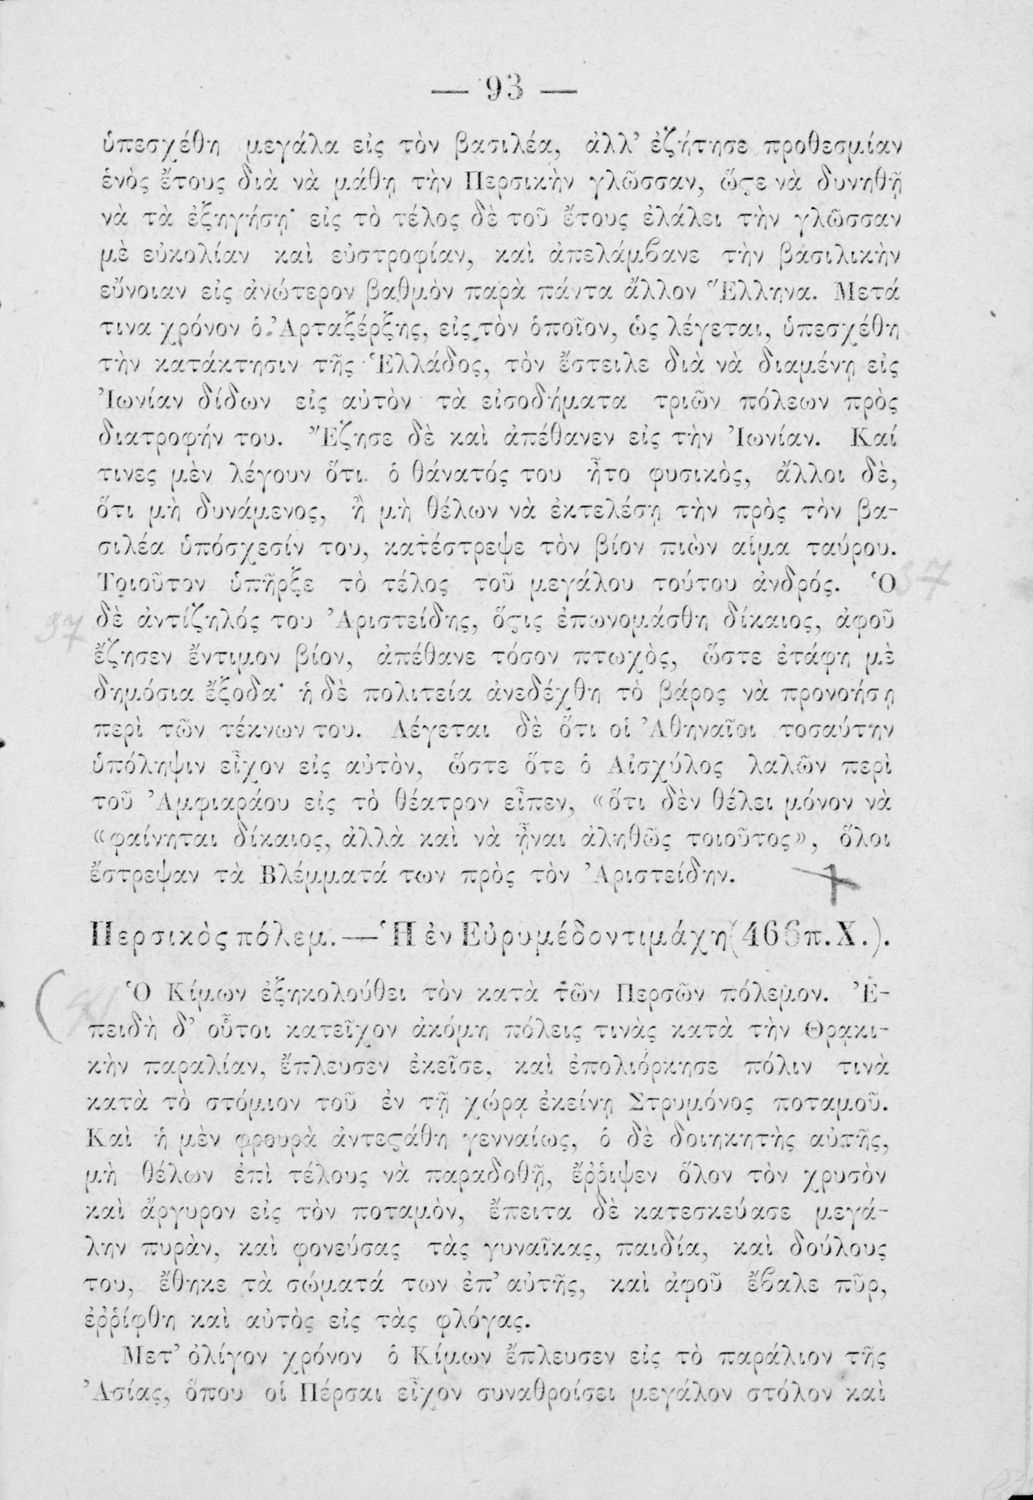 — 93 —
ὑπεσχέθη μεγάλα εἰς τὸν βασιλέα, ἀλλ’ ἐζήτησε προθεσμίαν
ἑνὸς ἔτους διὰ νὰ μάθῃ τὴν Περσικὴν γλῶσσαν, ὥϛε νὰ δυνηθῇ
νὰ τὰ ἐξηγήσῃ· εἰς τὸ τέλος δὲ τοῦ ἔτους ἐλάλει τὴν γλῶσσαν
μὲ εὐκολίαν καὶ εὐστροφίαν, καὶ ἀπελάμϐανε τὴν βασιλικὴν
εὔνοιαν εἰς ἀνώτερον βαθμὸν παρὰ πάντα ἄλλον Ἕλληνα. Μετά
τινα χρόνον ὁ Ἀρταξέρξης, εἰς τὸν ὁποῖον, ὡς λέγεται, ὑπεσχέθη
τὴν κατάκτησιν τῆς Ἑλλάδος, τὸν ἔστειλε διὰ νὰ διαμένῃ εἰς
Ἰωνίαν δίδων εἰς αὐτὸν τὰ εἰσοδήματα τριῶν πόλεων πρὸς
διατροφήν του. Ἔζησε δὲ καὶ ἀπέθανεν εἰς τὴν Ἰωνίαν. Καί
τινες μὲν λέγουν ὅτι ὁ θάνατός του ἦτο φυσικὸς, ἄλλοι δὲ,
ὅτι μὴ δυνάμενος, ἢ μὴ θέλων νὰ ἐκτελέσῃ τὴν πρὸς τὸν βα-
σιλέα ὑπόσχεσίν του, κατέστρεψε τὸν βίον πιὼν αἷμα ταύρου.
Τοιοῦτον ὑπῆρξε τὸ τέλος τοῦ μεγάλου τούτου ἀνδρός. Ὁ 37
37 δὲ ἀντίζηλός του Ἀριστείδης, ὅϛις ἐπωνομάσθη δίκαιος, ἀφοῦ
ἔζησεν ἔντιμον βίον, ἀπέθανε τόσον πτωχὸς, ὥστε ἐτάφη μὲ
δημόσια ἔξοδα· ἡ δὲ πολιτεία ἀνεδέχθη τὸ βάρος νὰ προνοήσῃ
περὶ τῶν τέκνων του. Λέγεται δὲ ὅτι οἱ Ἀθηναῖοι τοσαύτην
ὑπόληψιν εἶχον εἰς αὐτὸν, ὥστε ὅτε ὁ Αἰσχύλος λαλῶν περὶ
τοῦ Ἀμφιαράου εἰς τὸ θέατρον εἶπεν, «ὅτι δὲν θέλει μόνον νὰ
«φαίνηται δίκαιος, ἀλλὰ καὶ νὰ ἦναι ἀληθῶς τοιοῦτος», ὅλοι
ἔστρεψαν τὰ Βλέμματά των πρὸς τὸν Ἀριστείδην.
Περσικὸς πόλεμ. — Ἡ ἐν Εὐρυμέδοντι μάχη (466 π. Χ.).
Ὁ Κίμων ἐξηκολούθει τὸν κατὰ τῶν Περσῶν πόλεμον. Ἐ-
πειδὴ δ’ οὗτοι κατεῖχον ἀκόμη πόλεις τινὰς κατὰ τὴν Θρακι-
κὴν παραλίαν, ἔπλευσεν ἐκεῖσε, καὶ ἐπολιόρκησε πόλιν τινὰ
κατὰ τὸ στόμιον τοῦ ἐν τῇ χώρᾳ ἐκείνῃ Στρυμόνος ποταμοῦ.
Καὶ ἡ μὲν φρουρὰ ἀντεϛάθη γενναίως, ὁ δὲ δοιηκητὴς αὐτῆς,
μὴ θέλων ἐπὶ τέλους νὰ παραδοθῇ, ἔῤῥιψεν ὅλον τὸν χρυσὸν
καὶ ἄργυρον εἰς τὸν ποταμὸν, ἔπειτα δὲ κατεσκεύασε μεγά-
λην πυρὰν, καὶ φονεύσας τὰς γυναῖκας, παιδία, καὶ δούλους
του, ἔθηκε τὰ σώματά των ἐπ’ αὐτῆς, καὶ ἀφοῦ ἔϐαλε πῦρ,
ἐῤῥίφθη καὶ αὐτὸς εἰς τὰς φλόγας.
Μετ’ ὀλίγον χρόνον ὁ Κίμων ἔπλευσεν εἰς τὸ παράλιον τῆς
Ἀσίας, ὅπου οἱ Πέρσαι εἶχον συναθροίσει μεγάλον στόλον καὶ